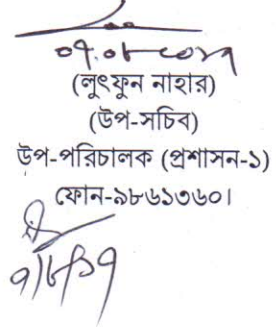 ০৭.০৮.২০১৭
(লুৎফুন নাহার)
(উপ-সচিব)
উপ-পরিচালক (প্রশাসন-১)
ফোন-৯৮৬১৩৬০।
৭/৮/১৭